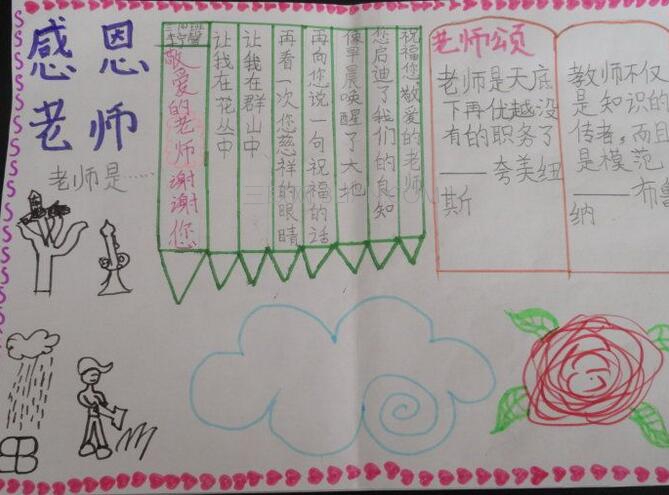 感恩
老师
老师是……
敬爱的老师谢谢您
让我在花丛中
让我在群山中
再看一次您慈祥的眼睛
再向您说一句祝福的话
像早晨唤醒了大地
您启迪了我们的良知
祝福您敬爱的老师
老师颂
老师是天底
下再优越没
有的职务了
——夸美纽
斯
教师不仅
是知识的
传者,而且
是模范
——布鲁
纳